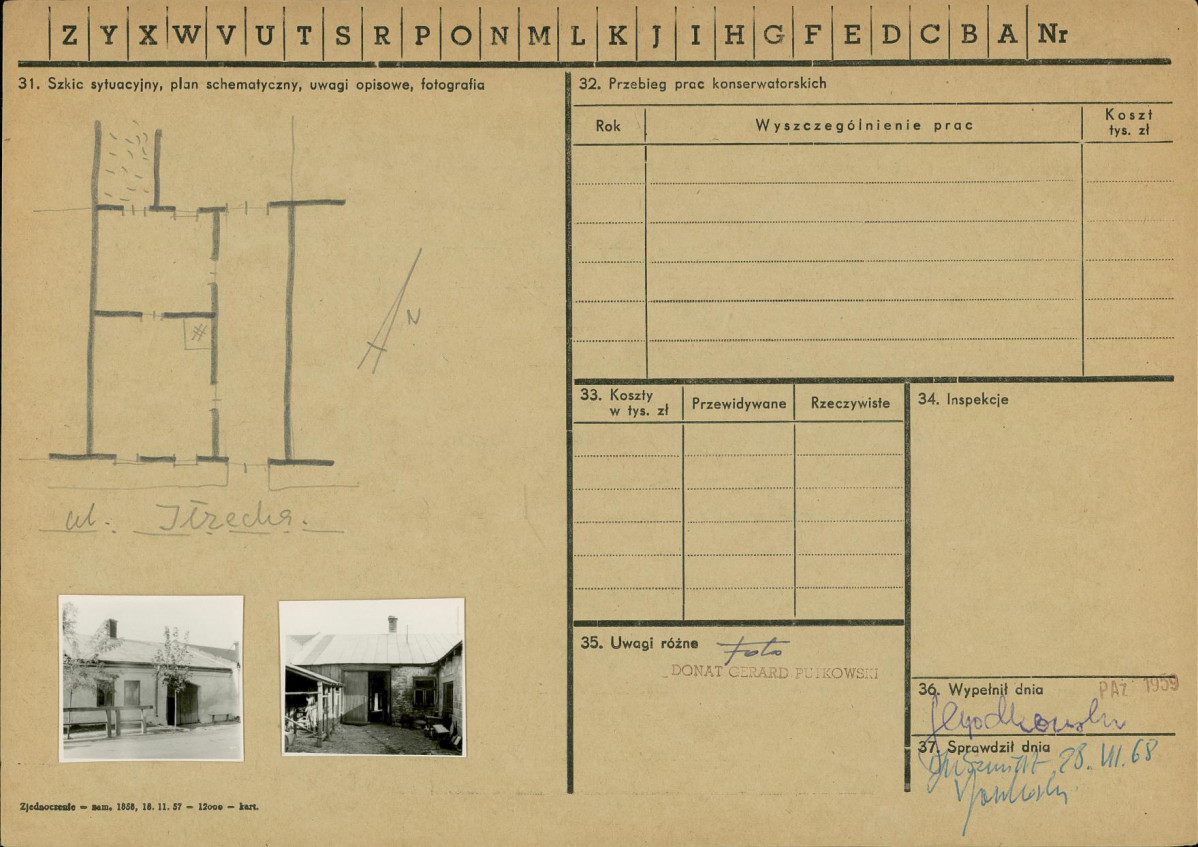 Z Y X W V U T S R P O N M L K J I H G F E D C B A Nr
31. Szkic sytuacyjny, plan schematyczny, uwagi opisowe, fotografia
N
ul. Iłżecka.
32. Przebieg prac konserwatorskich
Rok
Wyszczególnienie prac
Koszt
tys. zł
33. Koszty
w tys. zł
Przewidywane
Rzeczywiste
34. Inspekcje
35. Uwagi różne
Foto
DONAT GERARD PUTKOWSKI
36. Wypełnił dnia
PAŹ 1959
37. Sprawdził dnia
28. VII. 68
Zjednoczenie — zam. 1858, 18. 11. 57 — 12000 — kart.